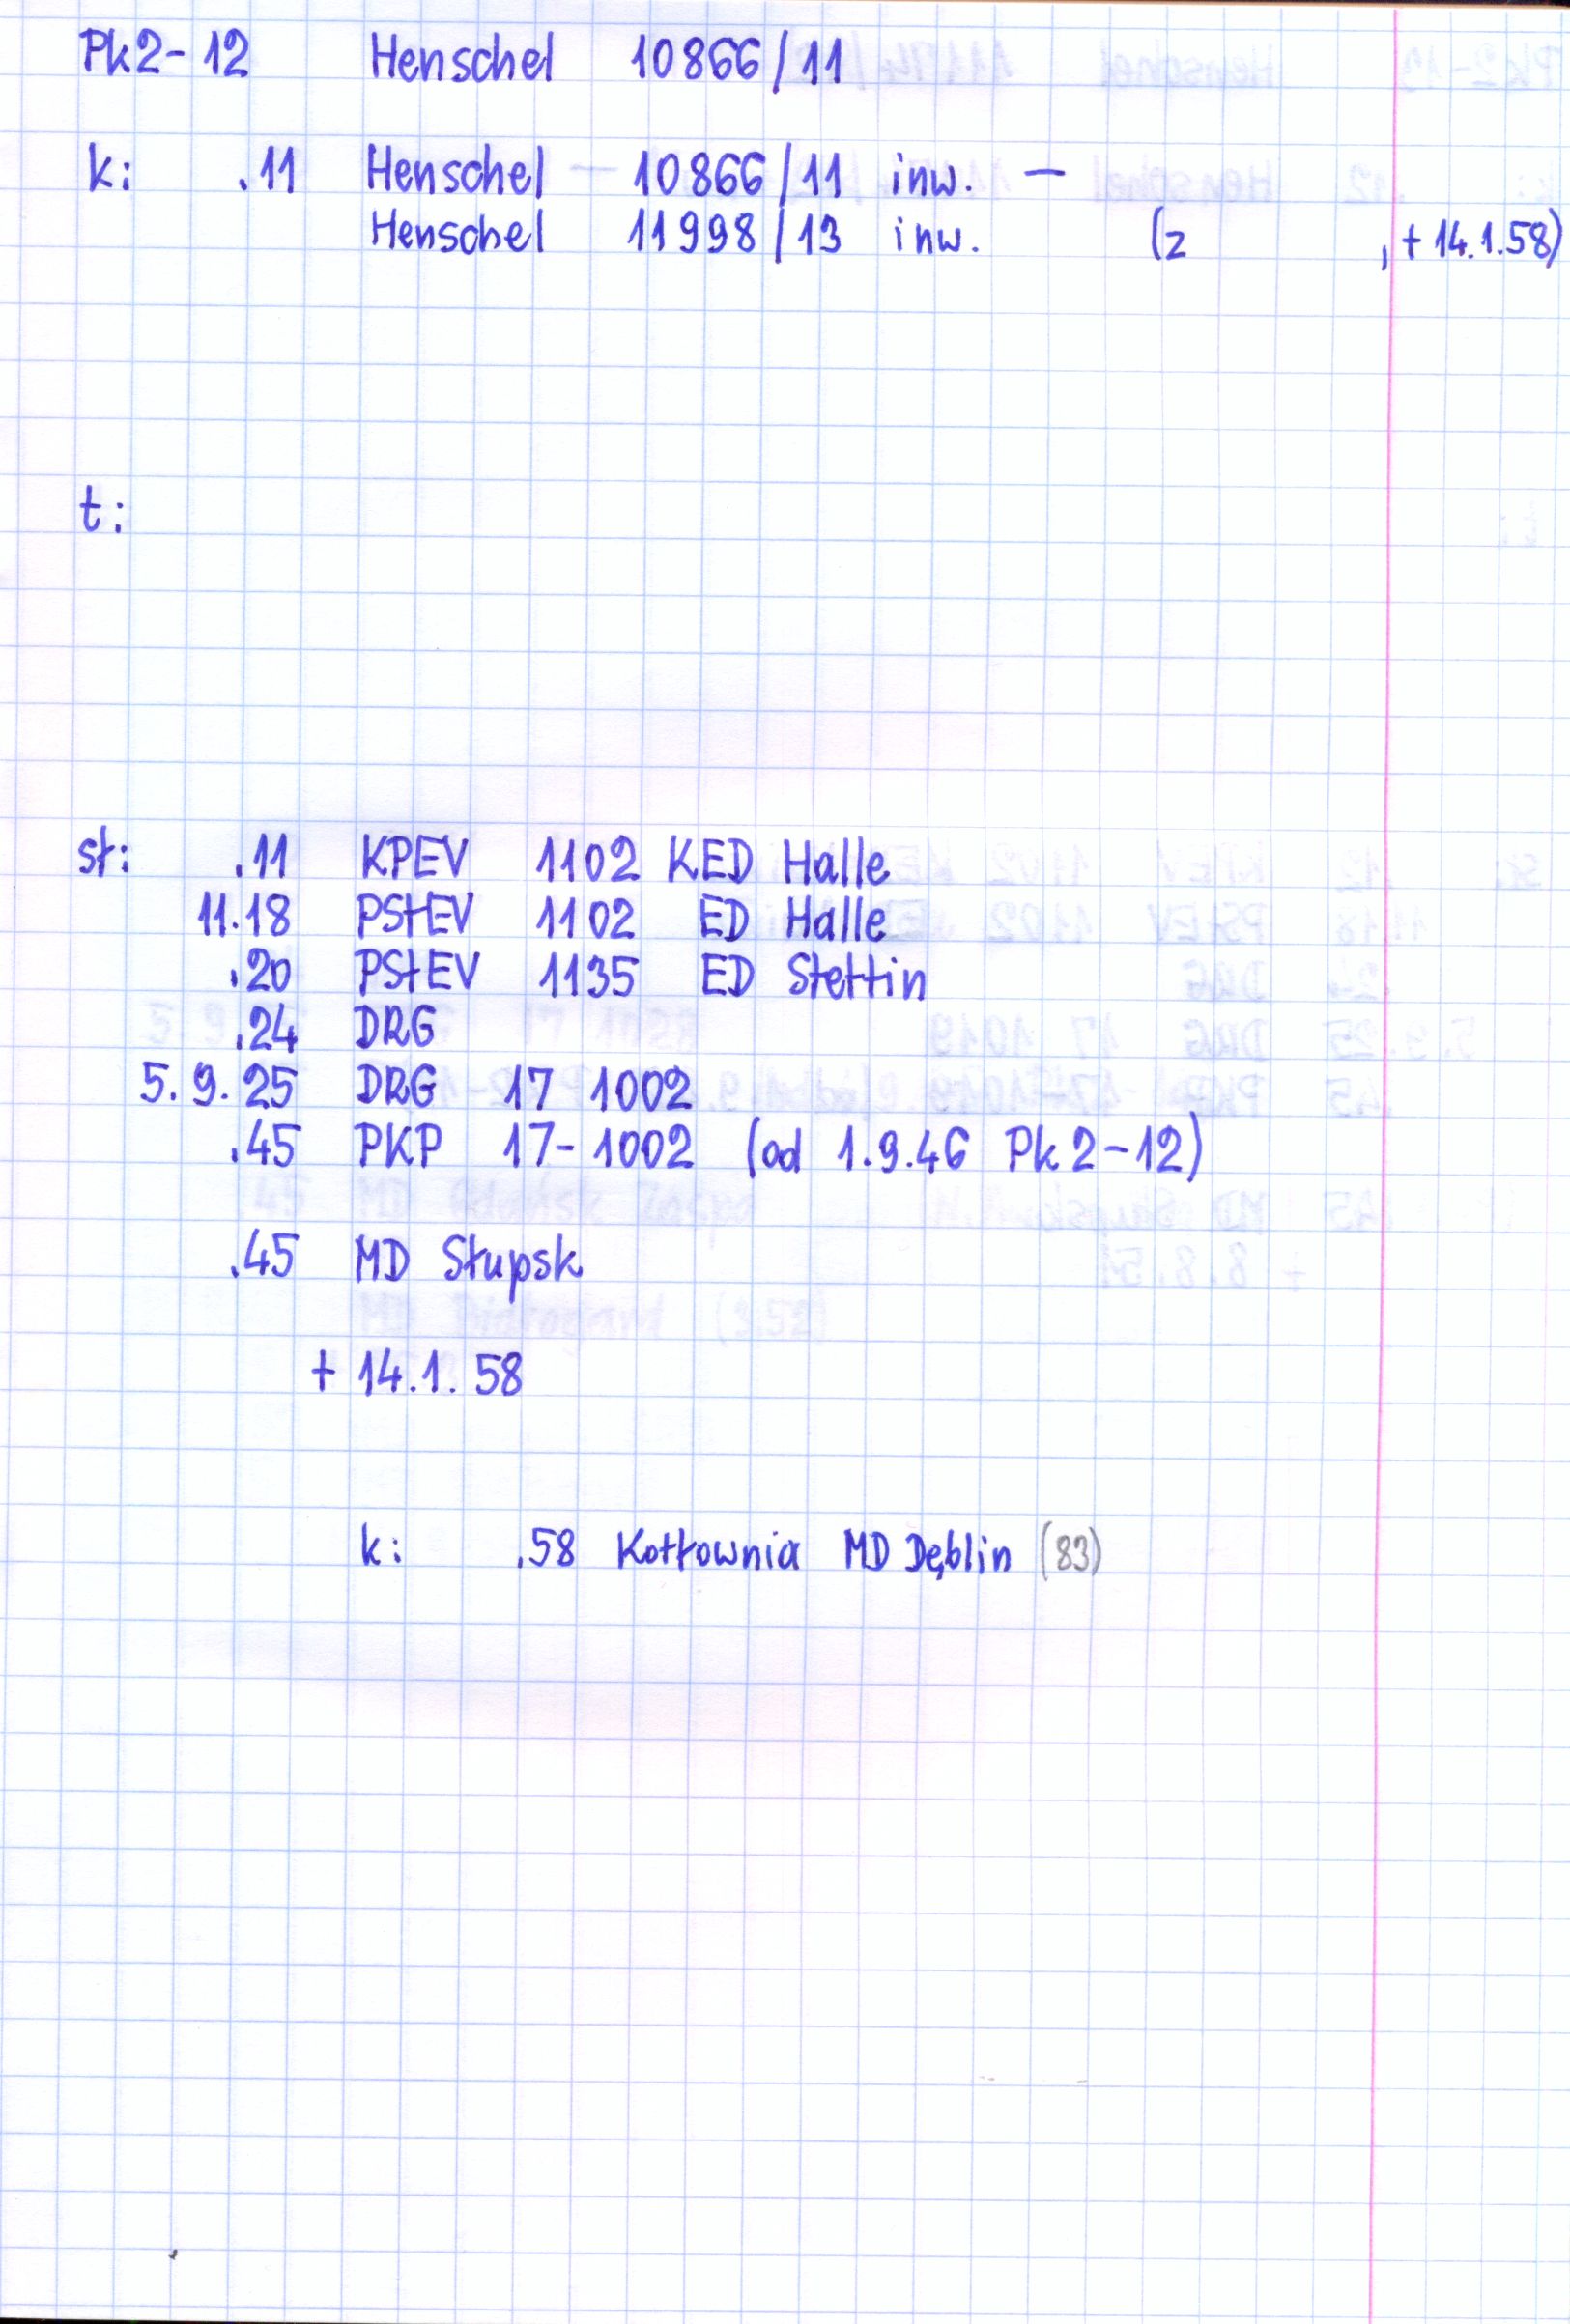 Pk2-12 Henschel 10866/11
k: .11 Henschel - 10866/11 inw. -
Henschel 11998/13 inw. (z , + 14.1.58)
t:
st: .11 KPEV 1102 KED Halle
11.18 PStEV 1102 ED Halle
.20 PStEV 1135 ED Stettin
.24 DRG
5.9.25 DRG 17 1002
.45 PKP 17-1002 (od 1.9.46 Pk2-12)
.45 MD Słupsk
+ 14.1.58
k: .58 Kotłownia MD Dęblin (83)